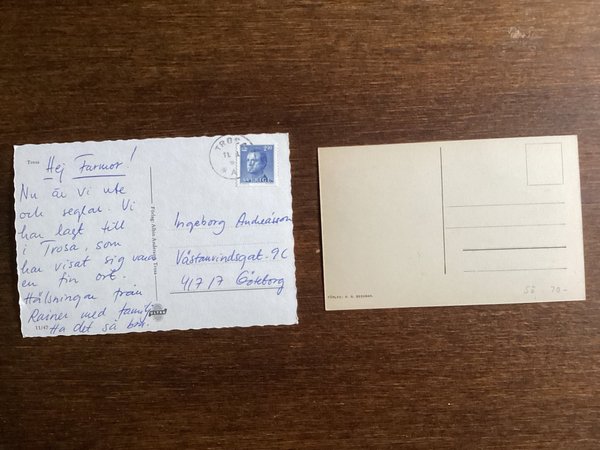 Trosa
Hej Farmor!
Nu är vi ute
och seglar. Vi
har lagt till
i Trosa, som
har visat sig vara
en fin ort.
Hälsningar från
Rainer med familj
Ha det så bra.
11/47
Förlag Albin Trosa
TROSA
Ingeborg Andreásson
Västanvindsgat. 9C
417 17 Göteborg
ULTRA
FÖRLAG